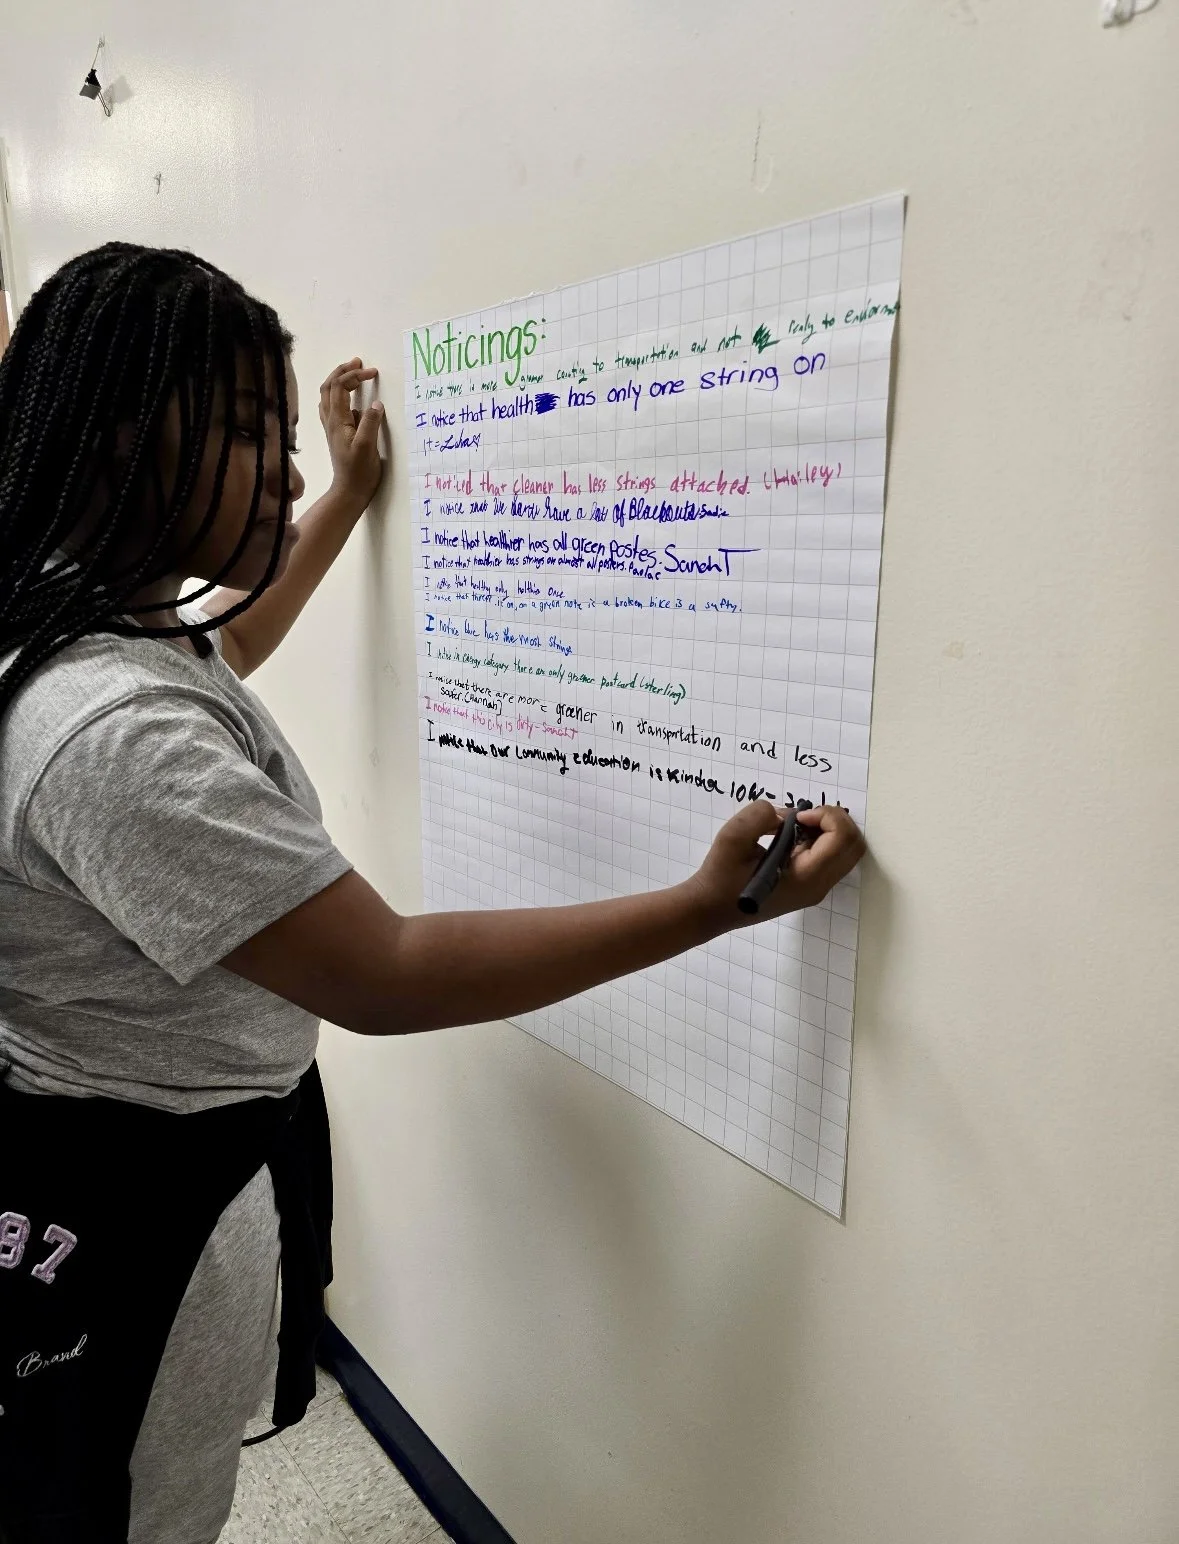 Noticings:
I notice there is more greener counting to transportation and not really to
I notice that health has only one string on
it =
I noticed that cleaner has less strings attached. (Hailey)
I notice that we have a lot of Blackouts-Sadie
I notice that healthier has all green postes. Sanch T
I notice that healthier has strings on almost all posters.
I notice that healthy only
I notice that on a green note is a broken bike is a safty.
I notice blue has the most strings
I notice in energy category there are only greener postcard (sterling)
I notice that there are more greener in transportation and less
safer. [Hannah]
I notice that this city is dirty-Sanch T
I notice that our community education is kinda low-
87
Brand